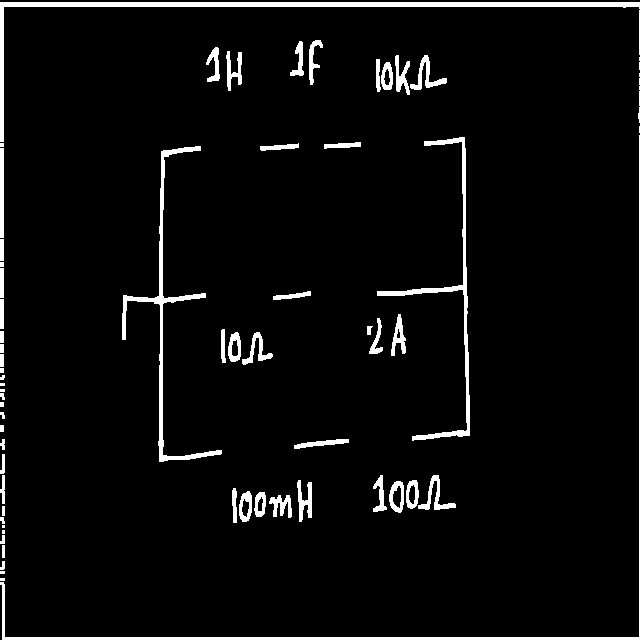 1H 1F 10KΩ
10Ω 2A
100mH 100Ω